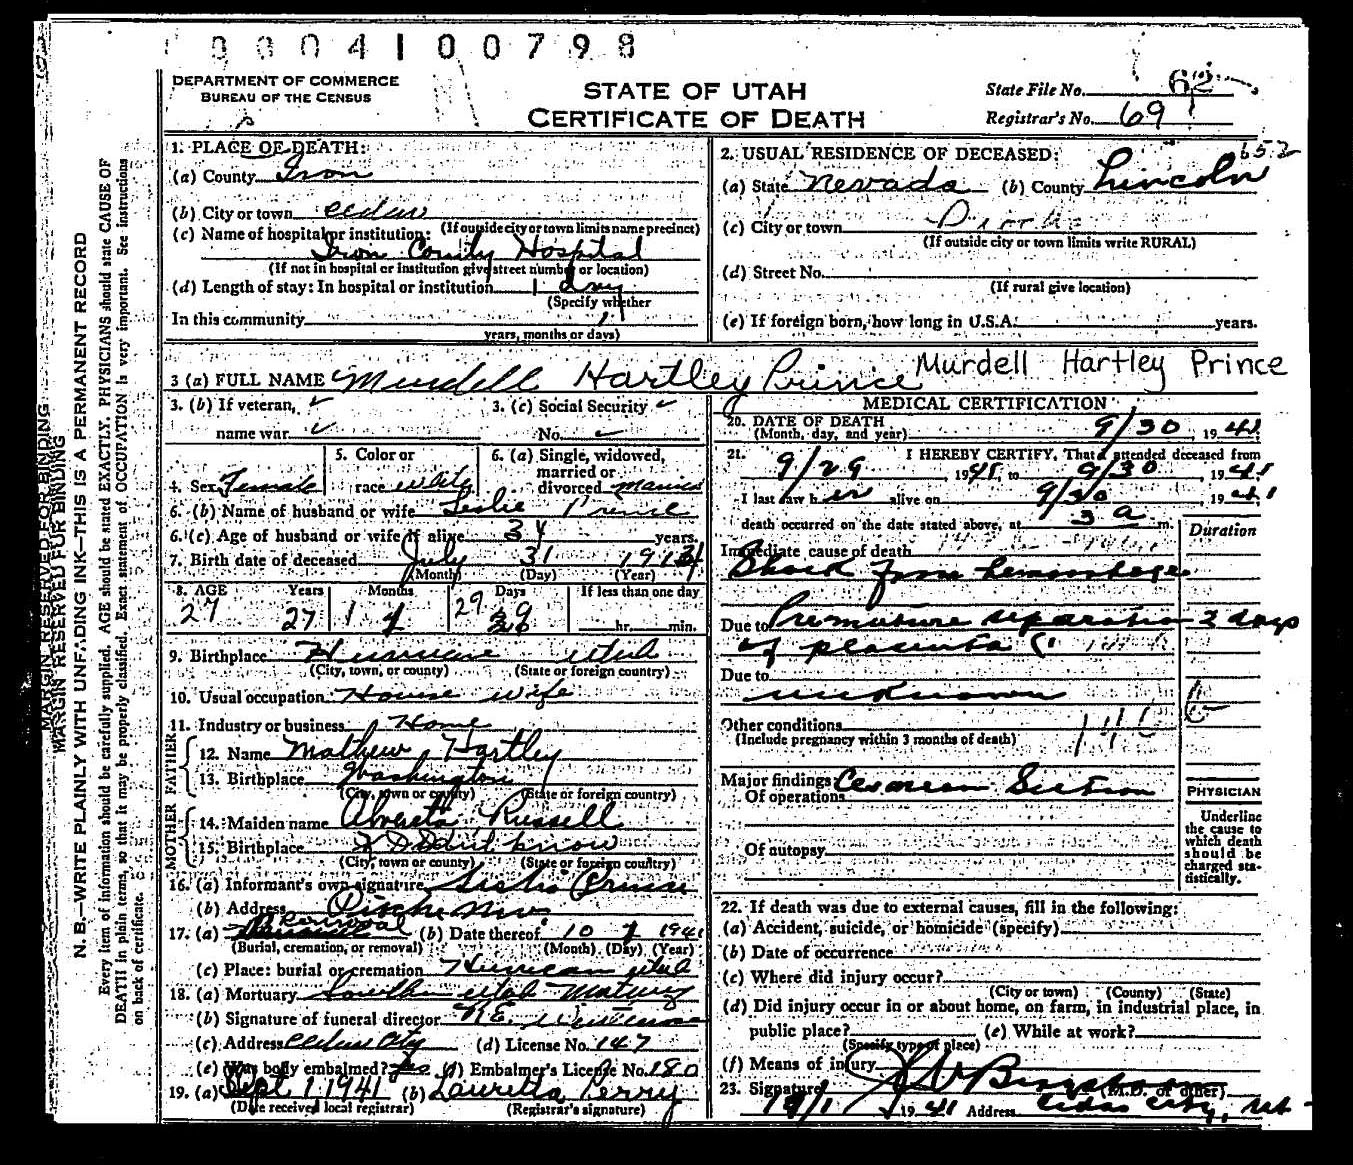 0004100798
DEPARTMENT OF COMMERCE
BUREAU OF THE CENSUS
STATE OF UTAH
CERTIFICATE OF DEATH
State File No. 62
Registrar's No. 69
MARGIN RESERVED FOR BINDING
N. B.—WRITE PLAINLY WITH UNFADING INK—THIS IS A PERMANENT RECORD
Every item of information should be carefully supplied. AGE should be stated EXACTLY. PHYSICIANS should state CAUSE OF
DEATH in plain terms, so that it may be properly classified. Exact statement of OCCUPATION is very important. See instructions
on back of certificate.
1. PLACE OF DEATH:
(a) County Iron
(b) City or town Cedar
(If outside city or town limits name precinct)
(c) Name of hospital or institution:
Iron County Hospital
(If not in hospital or institution give street number or location)
(d) Length of stay: In hospital or institution 1 day
(Specify whether
In this community
years, months or days)
2. USUAL RESIDENCE OF DECEASED: 652
(a) State Nevada (b) County Lincoln
(c) City or town Pioche
(If outside city or town limits write RURAL)
(d) Street No.
(If rural give location)
(e) If foreign born, how long in U.S.A. years.
3 (a) FULL NAME Murdell Hartley Prince Murdell Hartley Prince
3. (b) If veteran,
name war.
3. (c) Social Security
No.
4. Sex Female
5. Color or
race white
6. (a) Single, widowed,
married or
divorced married
6. (b) Name of husband or wife Leslie Prince
6. (c) Age of husband or wife if alive 34 years.
7. Birth date of deceased July 31 191
(Month) (Day) (Year)
8. AGE Years Months Days If less than one day
27 27 1 29 hr. min.
9. Birthplace Hurricane Utah
(City, town, or county) (State or foreign country)
10. Usual occupation House wife
11. Industry or business Home
FATHER
12. Name Mathew Hartley
13. Birthplace Washington
(City, town or county) (State or foreign country)
MOTHER
14. Maiden name Alverta Russell
15. Birthplace I Don't know
(City, town or county) (State or foreign country)
16. (a) Informant's own signature Leslie Prince
(b) Address Pioche Nev
17. (a) Removal (b) Date thereof 10 1 1941
(Burial, cremation, or removal) (Month) (Day) (Year)
(c) Place: burial or cremation Hurricane Utah
18. (a) Mortuary Southern Utah Mortuary
(b) Signature of funeral director
(c) Address Cedar City (d) License No. 147
(e) Was body embalmed? Yes (f) Embalmer's License No. 180
19. (a) Sept 1 1941 (b) Lauretta Perry
(Date received local registrar) (Registrar's signature)
MEDICAL CERTIFICATION
20. DATE OF DEATH
(Month, day, and year) 9/30, 1941
21. I HEREBY CERTIFY, That I attended deceased from
9/29 1941, to 9/30 1941
I last saw her alive on 9/30 1941
death occurred on the date stated above, at 3 a m.
Duration
Immediate cause of death
Shock from hemorrhage
Due to Premature separation 2 days
of placenta
Due to
unknown
Other conditions
(Include pregnancy within 3 months of death)
Major findings:
Of operations Cesarean Section
Of autopsy
PHYSICIAN
Underline
the cause to
which death
should be
charged sta-
tistically.
22. If death was due to external causes, fill in the following:
(a) Accident, suicide, or homicide (specify)
(b) Date of occurrence
(c) Where did injury occur?
(City or town) (County) (State)
(d) Did injury occur in or about home, on farm, in industrial place, in
public place? (e) While at work?
(Specify type of place)
(f) Means of injury
23. Signature (M.D. or other)
10/1 1941 Address Cedar City, Ut